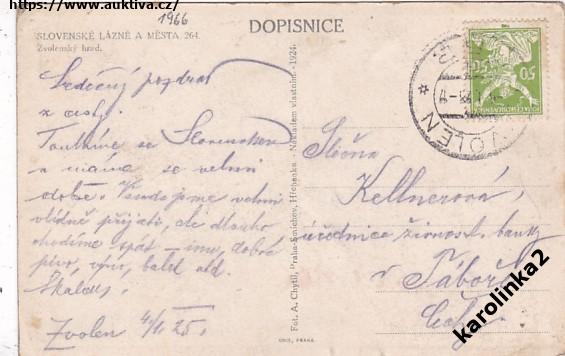 https://www.auktiva.cz/
1966
DOPISNICE
SLOVENSKÉ LÁZNĚ A MĚSTA. 264.
Zvolenský hrad.
Srdečný pozdrav
z cesty.
Touláme se Slovenskem
a máme se velmi
dobře. Všude jsme velmi
vlídně přijati, ale dlouho
chodíme spát – inu, dobré
pivo, víno, balet atd.
Zvolen 4/II 25.
Slečna
Kellnerová,
účednice živnost. banky
v Táboře
Čechy
Fot. A. Chytil, Praha-Smíchov, Hřebenka. Nákladem vlastním. -1924.
ZVOLEN
50
50
PRAHA.
karolinka2